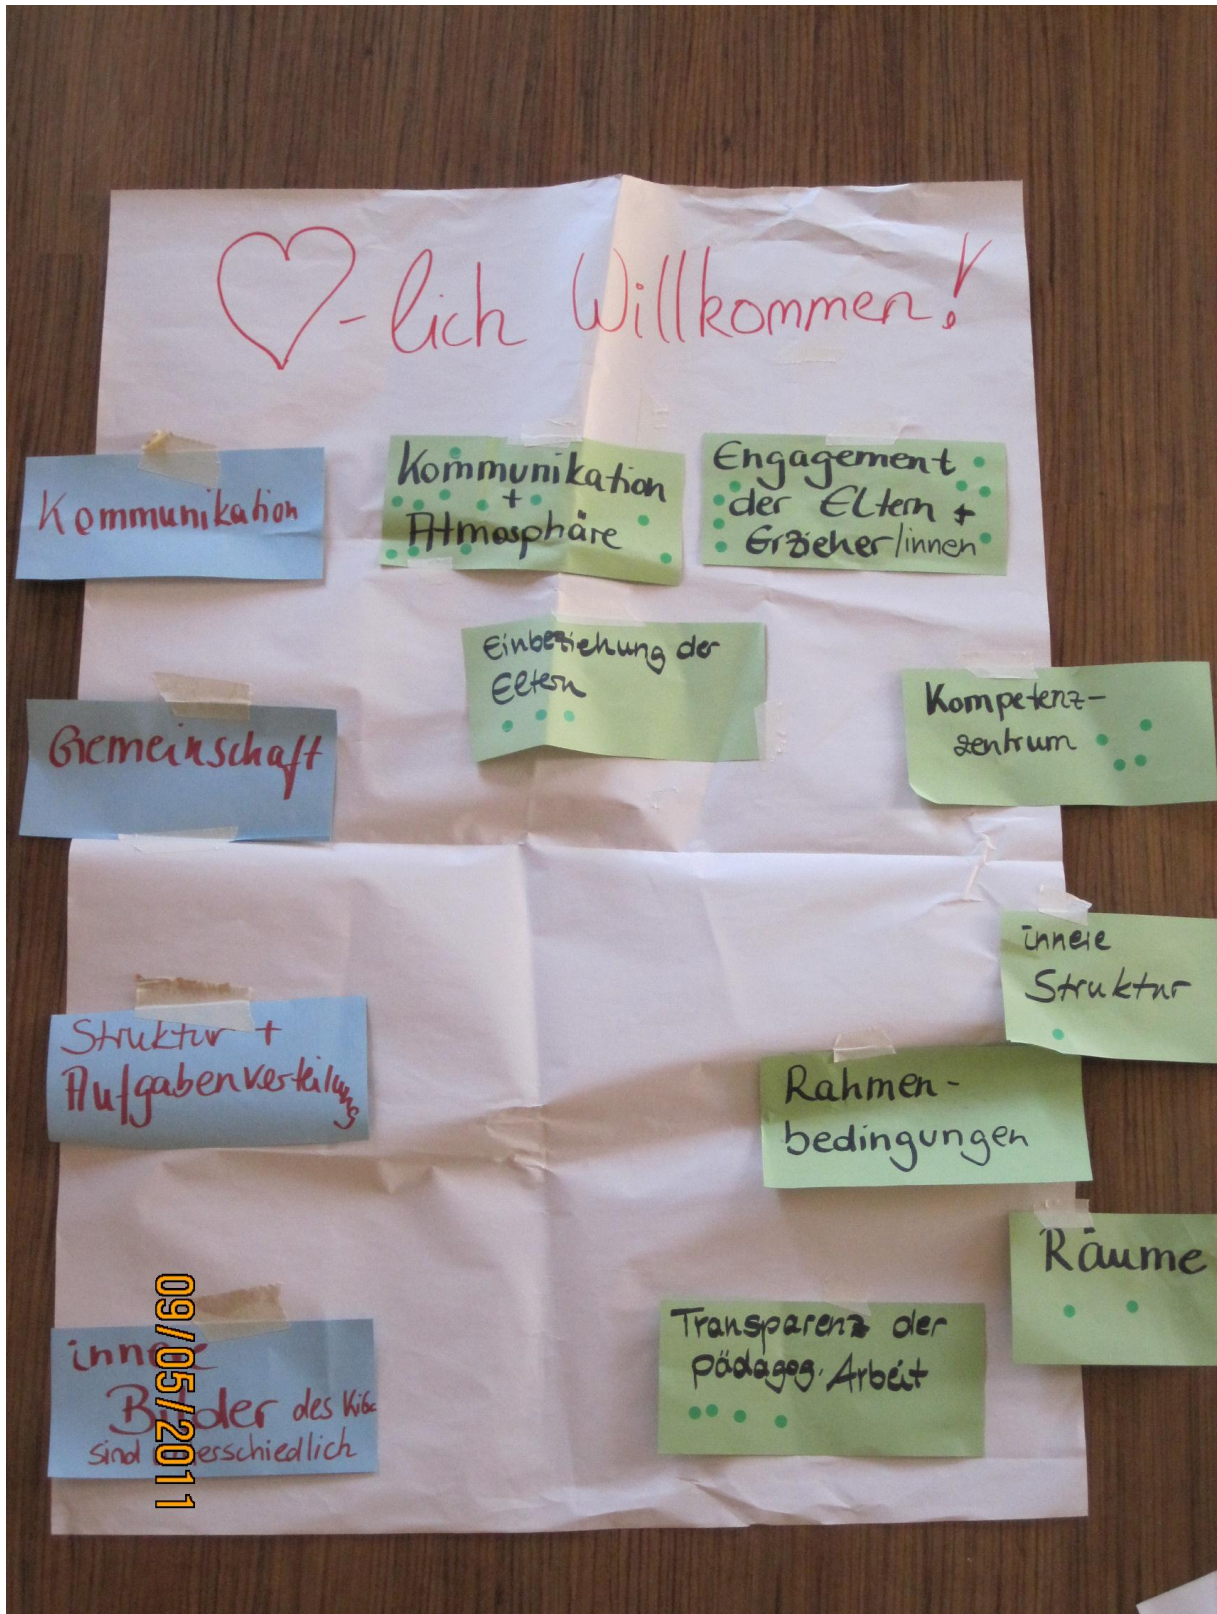 -lich Willkommen!
Kommunikation
Kommunikation
+
Atmosphäre
Engagement
der Eltern +
Erzieher/innen
Einbeziehung der
Eltern
Gemeinschaft
Kompetenz-
zentrum
innere
Struktur
Struktur +
Aufgabenverteilung
Rahmen-
bedingungen
Räume
Transparenz der
pädagog. Arbeit
innere
Bilder des
sind unterschiedlich
09/05/2011